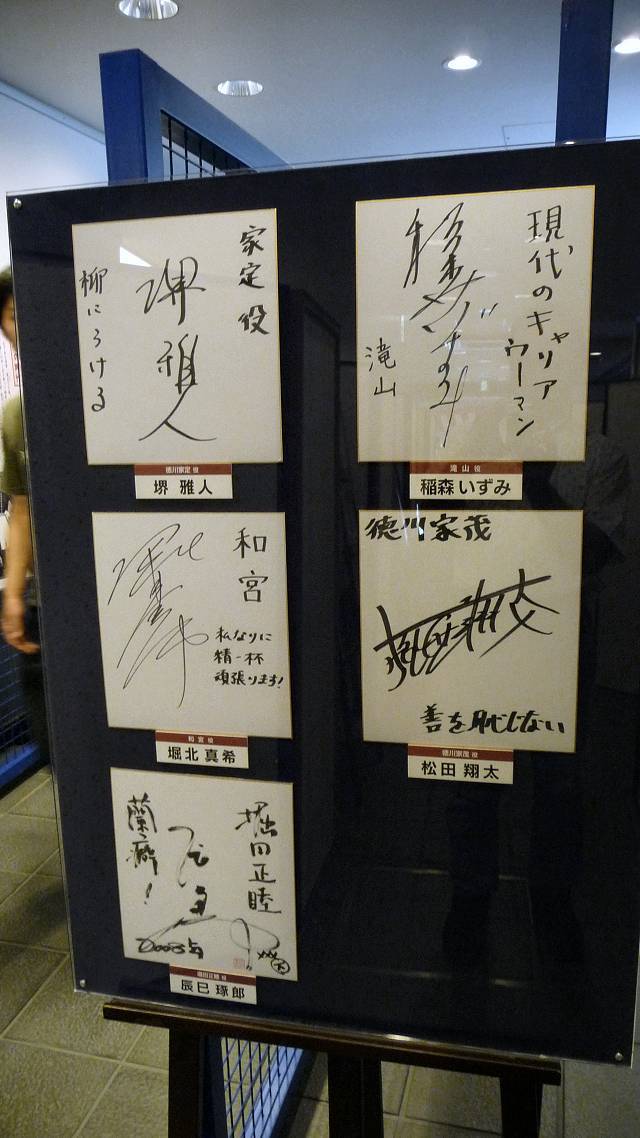 家定役
堺雅人
柳にうける
徳川家定 役
堺 雅人
現代のキャリア
ウーマン
滝山
滝山 役
稲森いずみ
和宮
私なりに
精一杯
頑張ります!
和宮 役
堀北 真希
徳川家茂
善を恥じない
徳川家茂 役
松田 翔太
堀田正睦
蘭癖!
堀田正睦 役
辰巳 琢郎